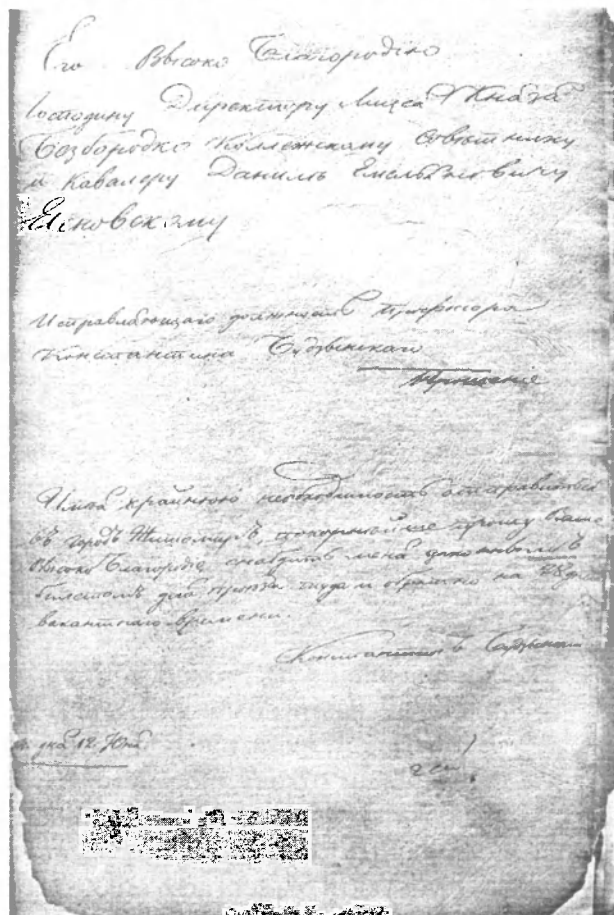 Его Высоко Благородію
Господину Директору Лицея Князя
Безбородко Коллежскому Советнику
и Кавалеру Данилѣ Емельяновичу
Ясновскому
Исправляющаго должность Профессора
Константина
Прошение
Имея крайнюю необходимость отправиться
въ городъ Житомиръ, покорнейше прошу Ваше
Высоко Благородіе снабдить меня
билетомъ для проезда туда и обратно на 28 дней
вакантнаго времени.
Константинъ
12 Юня